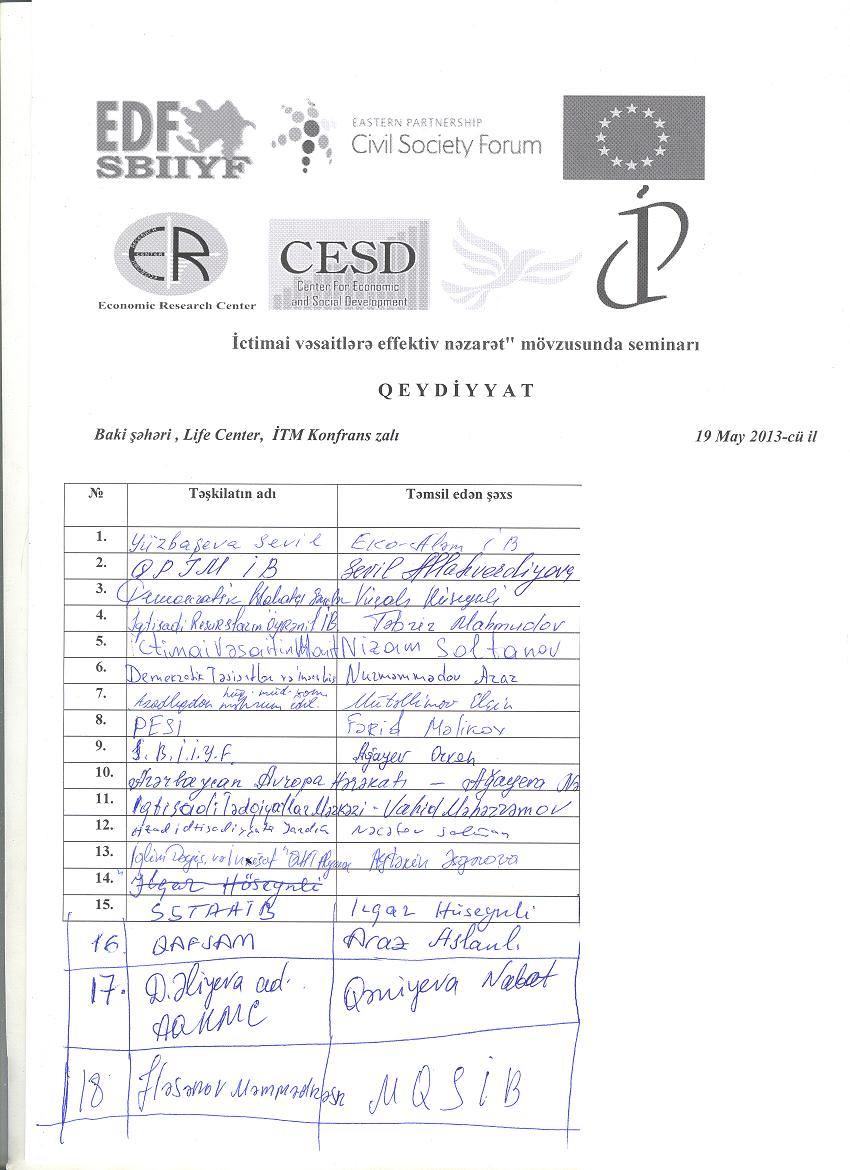 EDF
SBIIYF
EASTERN PARTNERSHIP
Civil Society Forum
ER
CENTER
Economic Research Center
CESD
Center For Economic
and Social Development
İ
İctimai vəsaitlərə effektiv nəzarət" mövzusunda seminarı
QEYDİYYAT
Baki şəhəri , Life Center, İTM Konfrans zalı 19 May 2013-cü il
№ Təşkilatın adı Təmsil edən şəxs
1. Yüzbaşeva Sevil Eko-Aləm İB
2. QPTM İB Sevil Allahverdiyeva
3. Vüqar Hüseynli
4. İqtisadi Resursların Öyrənil İB Təbriz Mahmudov
5. İctimai Vəsaitin Monit Nizam Soltanov
6. Demokratik Təsisatlar və Nurməmmədov Araz
7. Azadlıqdan məhrum edil. hüq. müd. Mütəllimov Elçin
8. PESİ Fərid Məlikov
9. S.B.İ.İ.Y.F. Ağayev
10. Azərbaycan Avropa Hərəkatı – Ağayeva
11. İqtisadi Tədqiqatlar Mərkəzi - Vahid Məhərrəmov
12. Azad iqtisadiyyata Yardım Nəcəfov
13. İqlim Dəyiş. və İnkişaf
14. İlqar Hüseynli
15. SSTAAİB İlqar Hüseynli
16 QAFSAM Araz Aslanlı
17. D.Əliyeva ad. Qəniyeva Nabat
AQKMC
18 Həsənov MQSİB